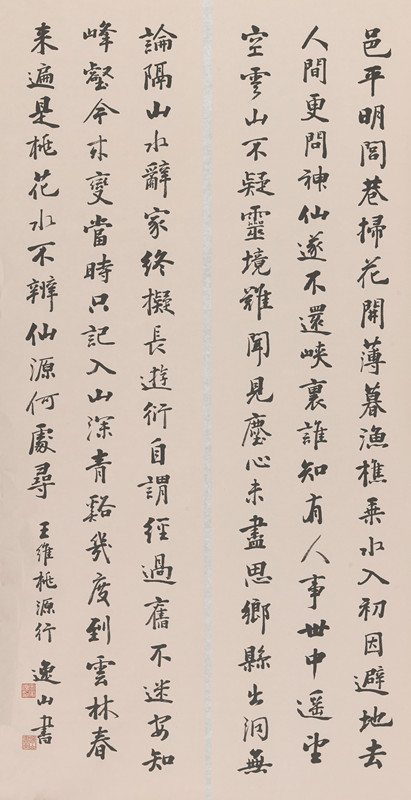 邑平明閭巷掃花開薄暮漁樵乘水入初因避地去
人間更問神仙遂不還峽裏誰知有人事世中遙望
空雲山不疑靈境難聞見塵心未盡思鄉縣出洞無
論隔山水辭家終擬長遊衍自謂經過舊不迷安知
峰壑今來變當時只記入山深青谿幾度到雲林春
来遍是桃花水不辨仙源何處尋 王維桃源行 逸山書